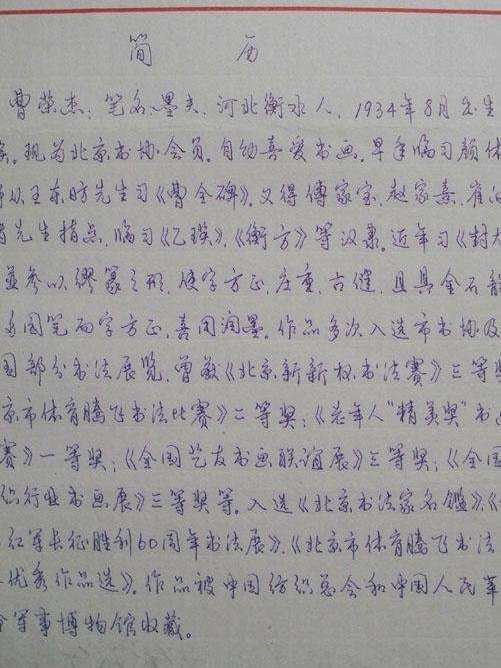 简 历
曹荣杰，笔名墨夫，河北衡水人，1934年8月出生
. 现为北京书协会员。自幼喜爱书画。早年临习颜体
从王东昉先生习《曹全碑》。又得傅家宝、赵家熹、崔
先生指点，临习《乙瑛》、《衡方》等汉隶。近年习《封
并参以缪篆之形，使字方正、庄重、古健，且具金石韵
圆笔而字方正，喜用润墨。作品多次入选市书协及
国部分书法展览，曾获《北京新新杯书法赛》三等奖
京市体育腾飞书法比赛》二等奖；《老年人“精美奖”书
赛》一等奖；《全国艺友书画联谊展》三等奖；《全国
织行业书画展》三等奖等。入选《北京书法家名鉴》、《
红军长征胜利60周年书法展》、《北京市体育腾飞书法
优秀作品选》。作品被中国纺织总会和中国人民革
命军事博物馆收藏。